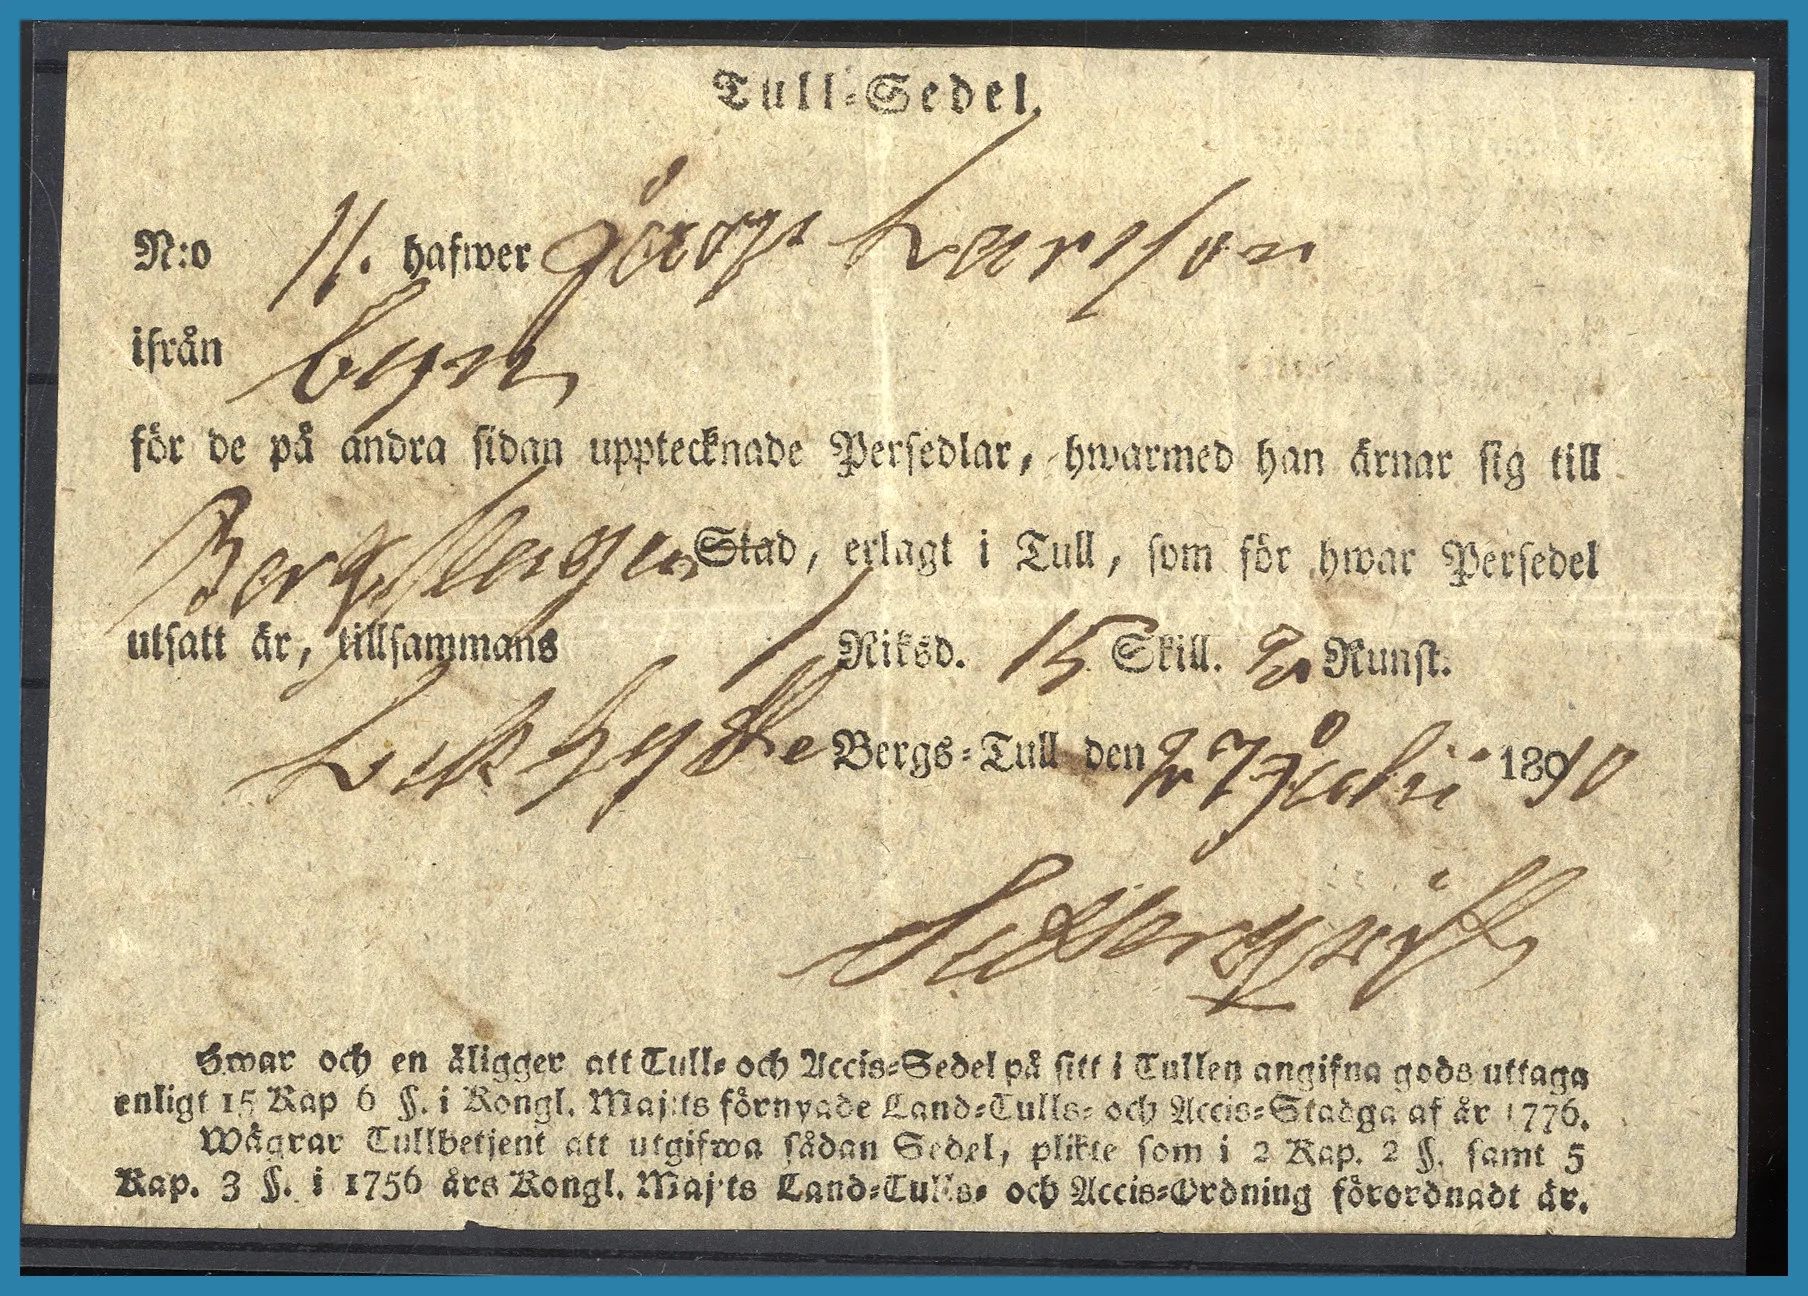 Tull-Sedel.
N:o 11. hafwer Jöns Larsson
ifrån Byn
för de på andra sidan upptecknade Persedlar, hwarmed han ärnar sig till
Bergslagen Stad, erlagt i Tull, som för hwar Persedel
utsatt är, tillsammans Riksd. 15 Skill. 2 Runst.
Lekhytte Bergs-Tull den 27 Julii 1810
Hwar och en åligger att Tull- och Accis-Sedel på sitt i Tullen angifna gods uttaga
enligt 15 Kap 6 §. i Kongl. Maj:ts förnyade Land-Tulls- och Accis-Stadga af år 1776.
Wägrar Tullbetjent att utgifwa sådan Sedel, plikte som i 2 Kap. 2 §. samt 5
Kap. 3 §. i 1756 års Kongl. Maj:ts Land-Tulls- och Accis-Ordning förordnadt är.